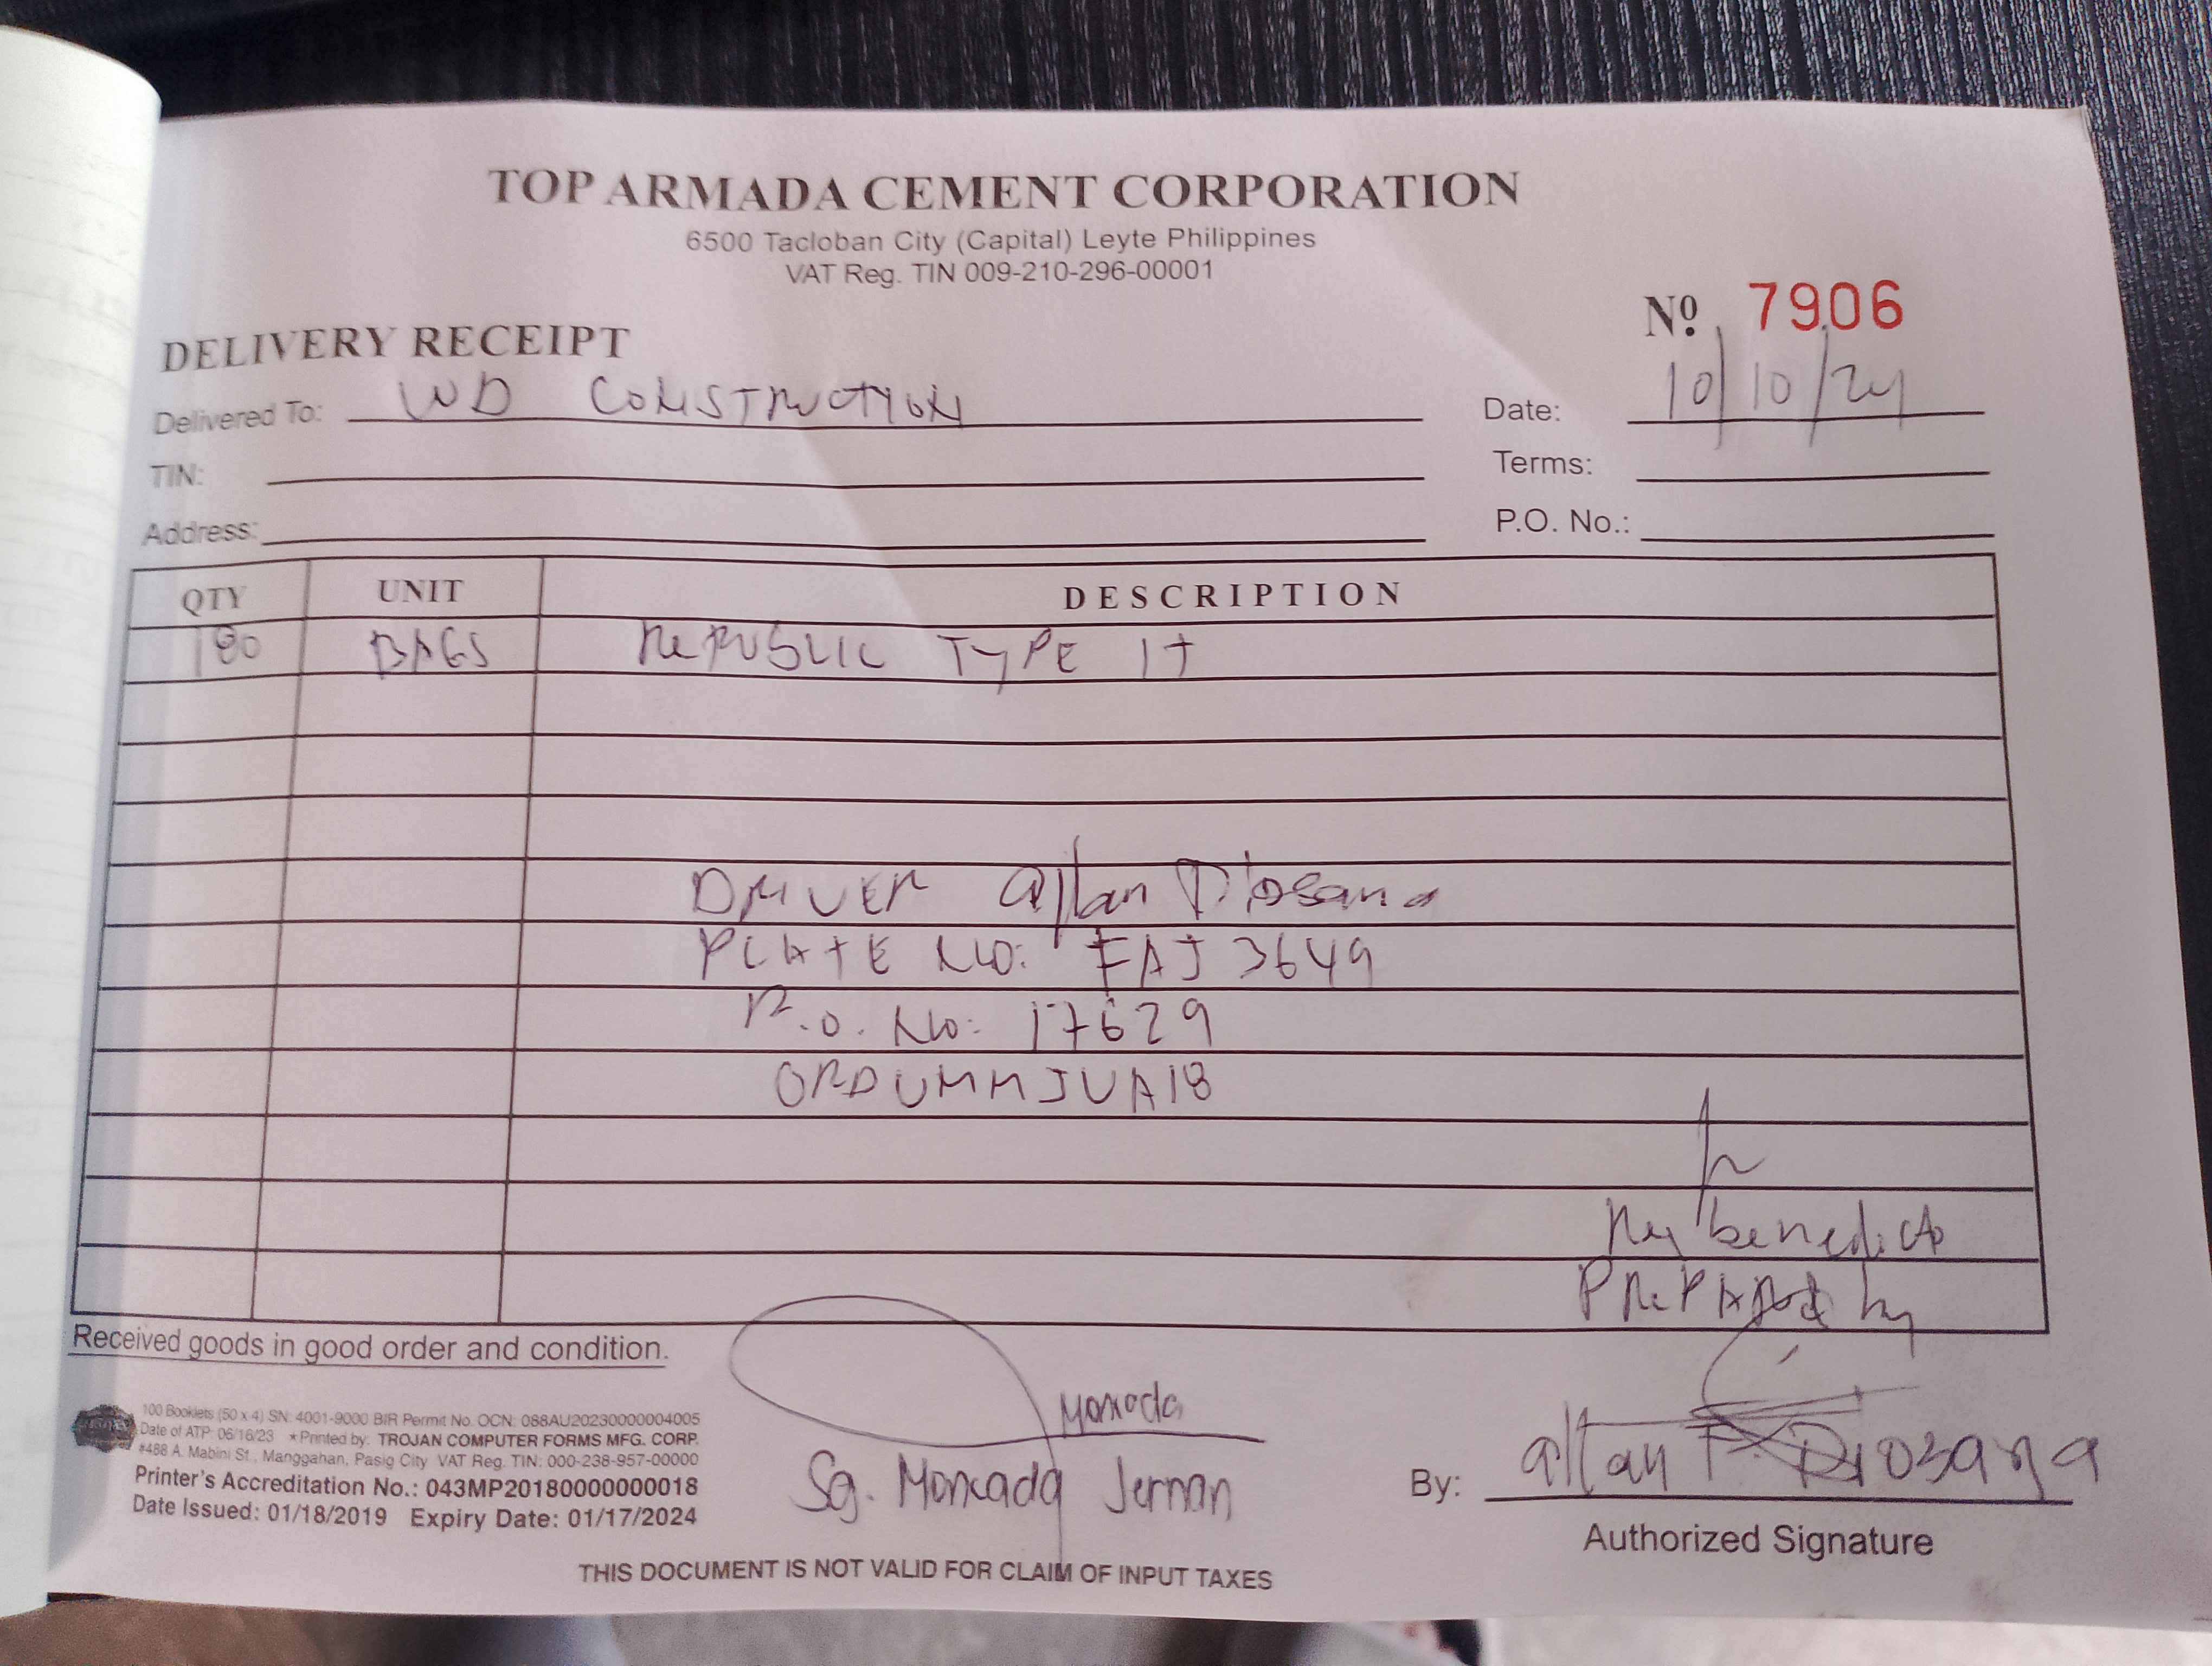 TOP ARMADA CEMENT CORPORATION
6500 Tacloban City (Capital) Leyte Philippines
VAT Reg. TIN 009-210-296-00001
Nº 7906
DELIVERY RECEIPT
Delivered To: WD CONSTRUCTION
Date: 10/10/24
TIN:
Terms:
Address:
P.O. No.:
QTY UNIT DESCRIPTION
180 BAGS REPUBLIC TYPE 1T
DRIVER Allan Diosana
PLATE NO: FAJ 3649
P.O. NO: 17629
ORDUMMJUA18
Rey benedicto
PREPARed by
Received goods in good order and condition.
Moncada
Sg. Moncada Jernan
100 Booklets (50 x 4) SN: 4001-9000 BIR Permit No. OCN: 088AU20230000004005
Date of ATP: 06/16/23 *Printed by: TROJAN COMPUTER FORMS MFG. CORP.
#488 A. Mabini St., Manggahan, Pasig City VAT Reg. TIN: 000-238-957-00000
Printer's Accreditation No.: 043MP20180000000018
Date Issued: 01/18/2019 Expiry Date: 01/17/2024
By: allan P. Diosana
Authorized Signature
THIS DOCUMENT IS NOT VALID FOR CLAIM OF INPUT TAXES